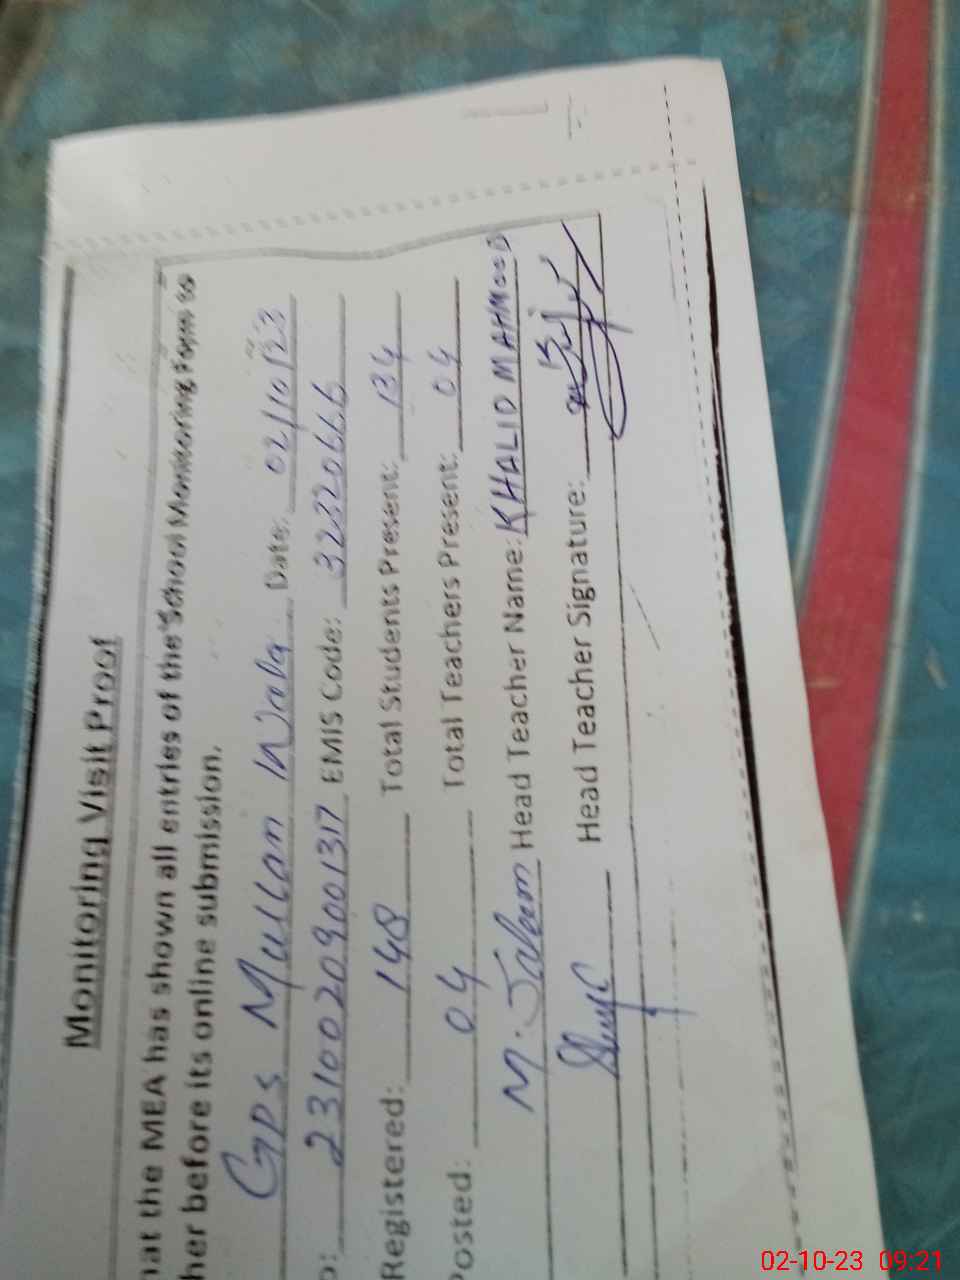 Monitoring Visit Proof
hat the MEA has shown all entries of the School Monitoring Form to
her before its online submission.
GPS Mullan Wala Date: 02/10/23
o: 23100209001317 EMIS Code: 32320666
Registered: 148 Total Students Present: 134
Posted: 04 Total Teachers Present: 04
M. Saleem Head Teacher Name: KHALID MAHMOOD
Head Teacher Signature:
02-10-23 09:21